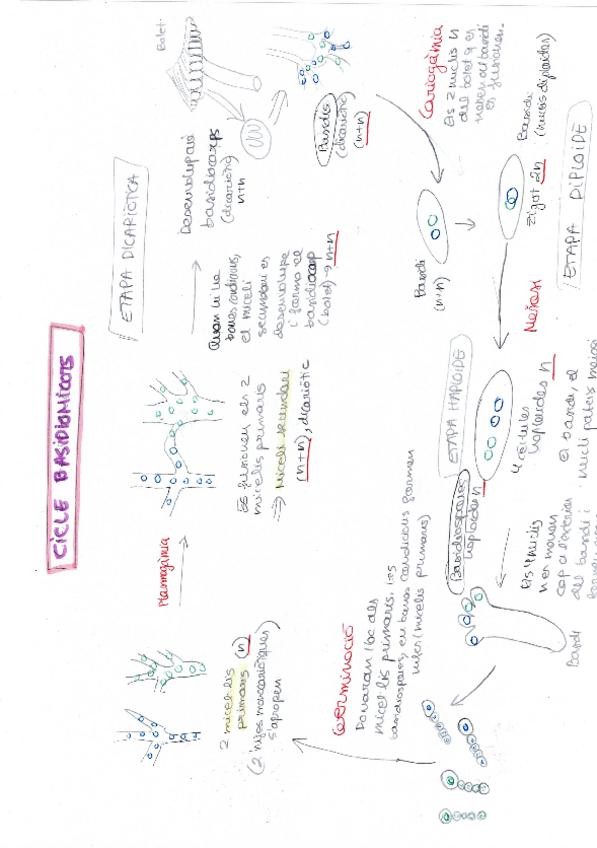 CICLE BASIDIOMICOTS
2 micel·lis
primaris (n)
(2 hifes monocariòtiques)
s'apropen
Plasmogàmia
Es fusionen els 2
micelis primaris
⇒ Miceli secundari
(n+n), dicariòtic
ETAPA DICARIÒTICA
Quan hi ha
bones condicions,
el miceli
secundari es
desenvolupa
i forma el
basidiocarp
(bolet) → n+n
Desenvolupat
basidiocarps
(dicariòtic)
n+n
Bolet
Basidis
(dicariòtic)
(n+n)
Cariogàmia
Els 2 nuclis n
del bolet q es
es fusionen.
Basidi
(n+n)
Basidi
(nuclis diploides)
Zigot 2n
ETAPA DIPLOIDE
Meiosi
ETAPA HAPLOIDE
4 cèl·lules
haploides n
El basidi, el
nucli pateix meiosi
Els 4 nuclis
n es mouen
cap a l'exterior
del basidi i
Basidiospores
haploides n
Basidi
Germinació
Donaran lloc als
micel·lis primaris. Les
basidiospores, en bones condicions formen
hifes (micelis primaris)